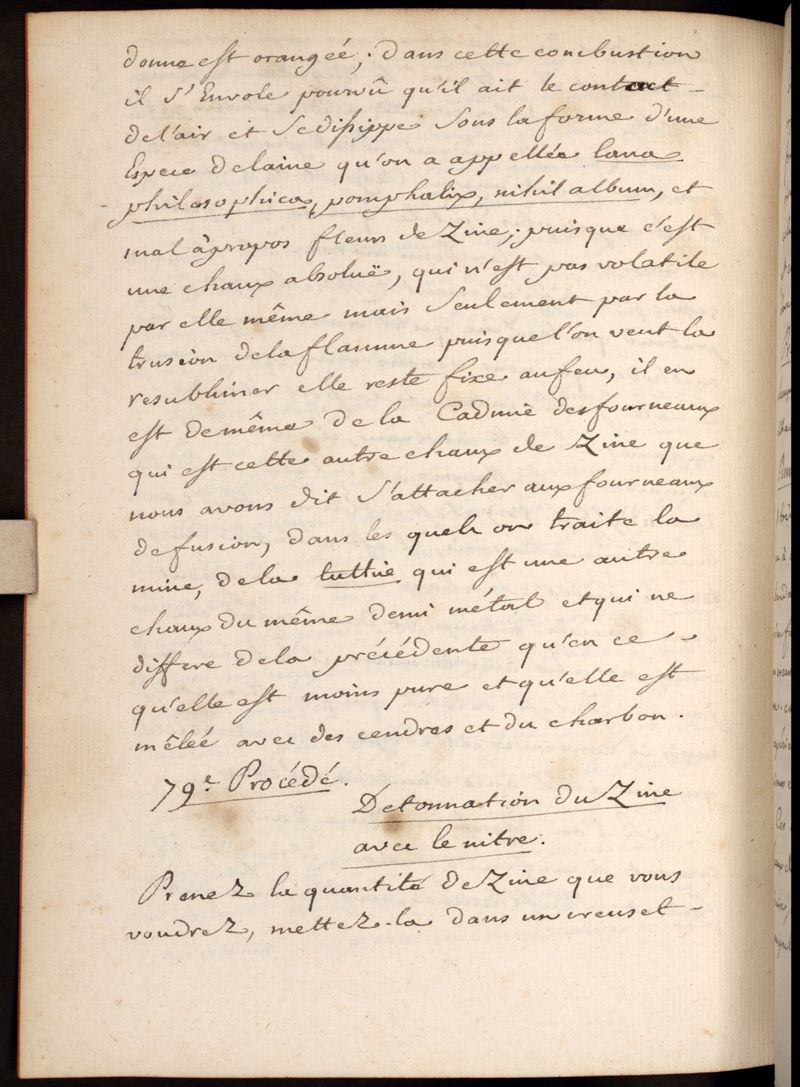 donne est orangée; dans cette combustion
il s'Envole pourvû qu'il ait le contact
de l'air et se dissippe sous la forme d'une
Espece de laine qu'on a appellée lana
philosophica, pompholix, nihil album, et
mal àpropos fleurs de Zinc; puisque c'est
une chaux absoluë, qui n'est pas volatile
par elle même mais seulement par la
trusion de la flamme puisque l'on veut la
resublimer elle reste fixe au feu, il en
est de même de la Cadmie des fourneaux
qui est cette autre chaux de Zinc que
nous avons dit s'attacher aux fourneaux
de fusion, dans les quels on traite la
mine, de la tuttie qui est une autre
chaux du même demi métal et qui ne
differe de la précédente qu'en ce
qu'elle est moins pure et qu'elle est
mêlée avec des cendres et du charbon.
79e Procédé.
Detonnation du Zinc
avec le nitre.
Prenez la quantité de Zinc que vous
voudrez, mettez-la dans un creuset